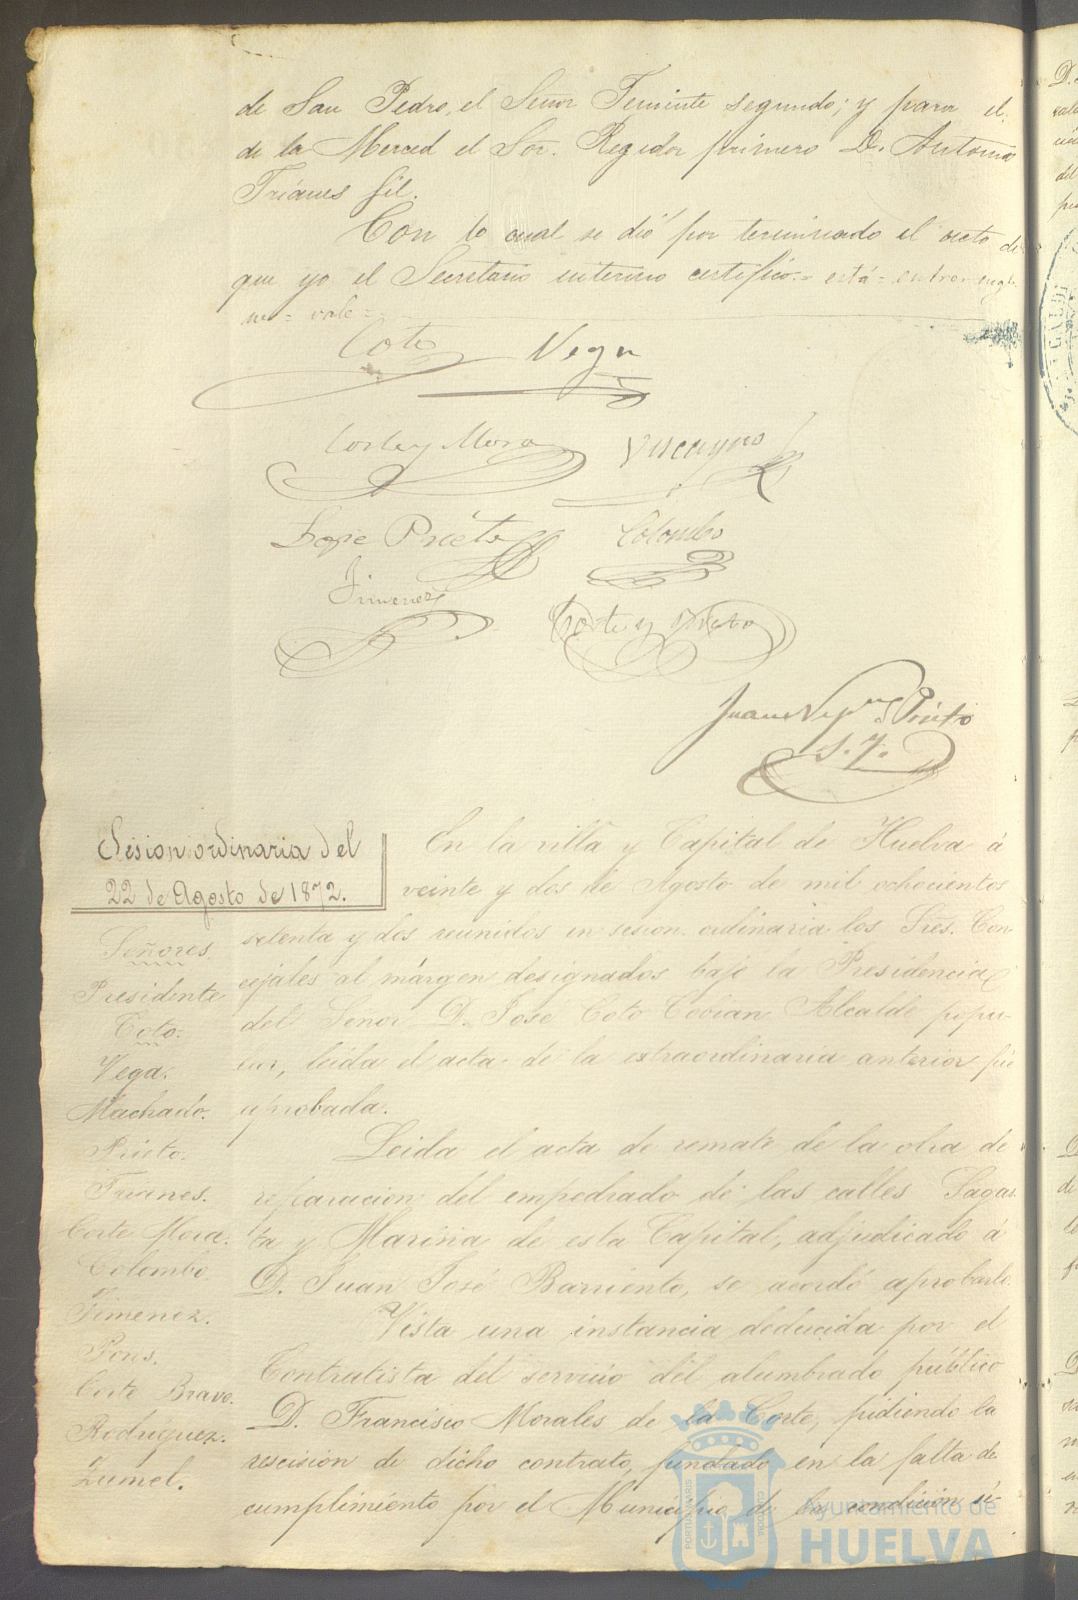 de San Pedro, el Señor Teniente segundo; y para el
de la Merced el Sor. Regidor primero D. Antonio
Trianes Gil.
Con lo cual se dió por terminado el acto de
que yo el Secretario interino certifico.= está = entrerenglo
nes = vale =
Coto Vega
Corte y Mora Viscayno
Lope Prieto Colombo
Jimenez
Corte y Bravo
Juan Prieto
S. I.
Sesion ordinaria del
22 de Agosto de 1872.
Señores.
Presidente
Coto.
Vega.
Machado.
Prieto.
Trianes.
Corte Mora.
Colombo.
Jimenez.
Pons.
Corte Bravo.
Rodriguez.
Zumel.
En la villa y Capital de Huelva á
veinte y dos de Agosto de mil ochocientos
setenta y dos reunidos en sesion ordinaria los Sres. Con-
cejales al márgen designados bajo la Presidencia
del Señor D. José Coto Cobian Alcalde popu-
lar, leida el acta de la estraordinaria anterior fué
aprobada.
Leida el acta de remate de la obra de
reparacion del empedrado de las calles Sagas-
ta y Marina de esta Capital, adjudicado á
D. Juan José Barriento, se acordó aprobarlo.
Vista una instancia deducida por el
Contratista del servicio del alumbrado público
D. Francisco Morales de la Corte, pidiendo la
rescision de dicho contrato, fundado en la falta de
cumplimiento por el Municipio de la condicion si-
PORTUS MARIS
Ayuntamiento de
HUELVA